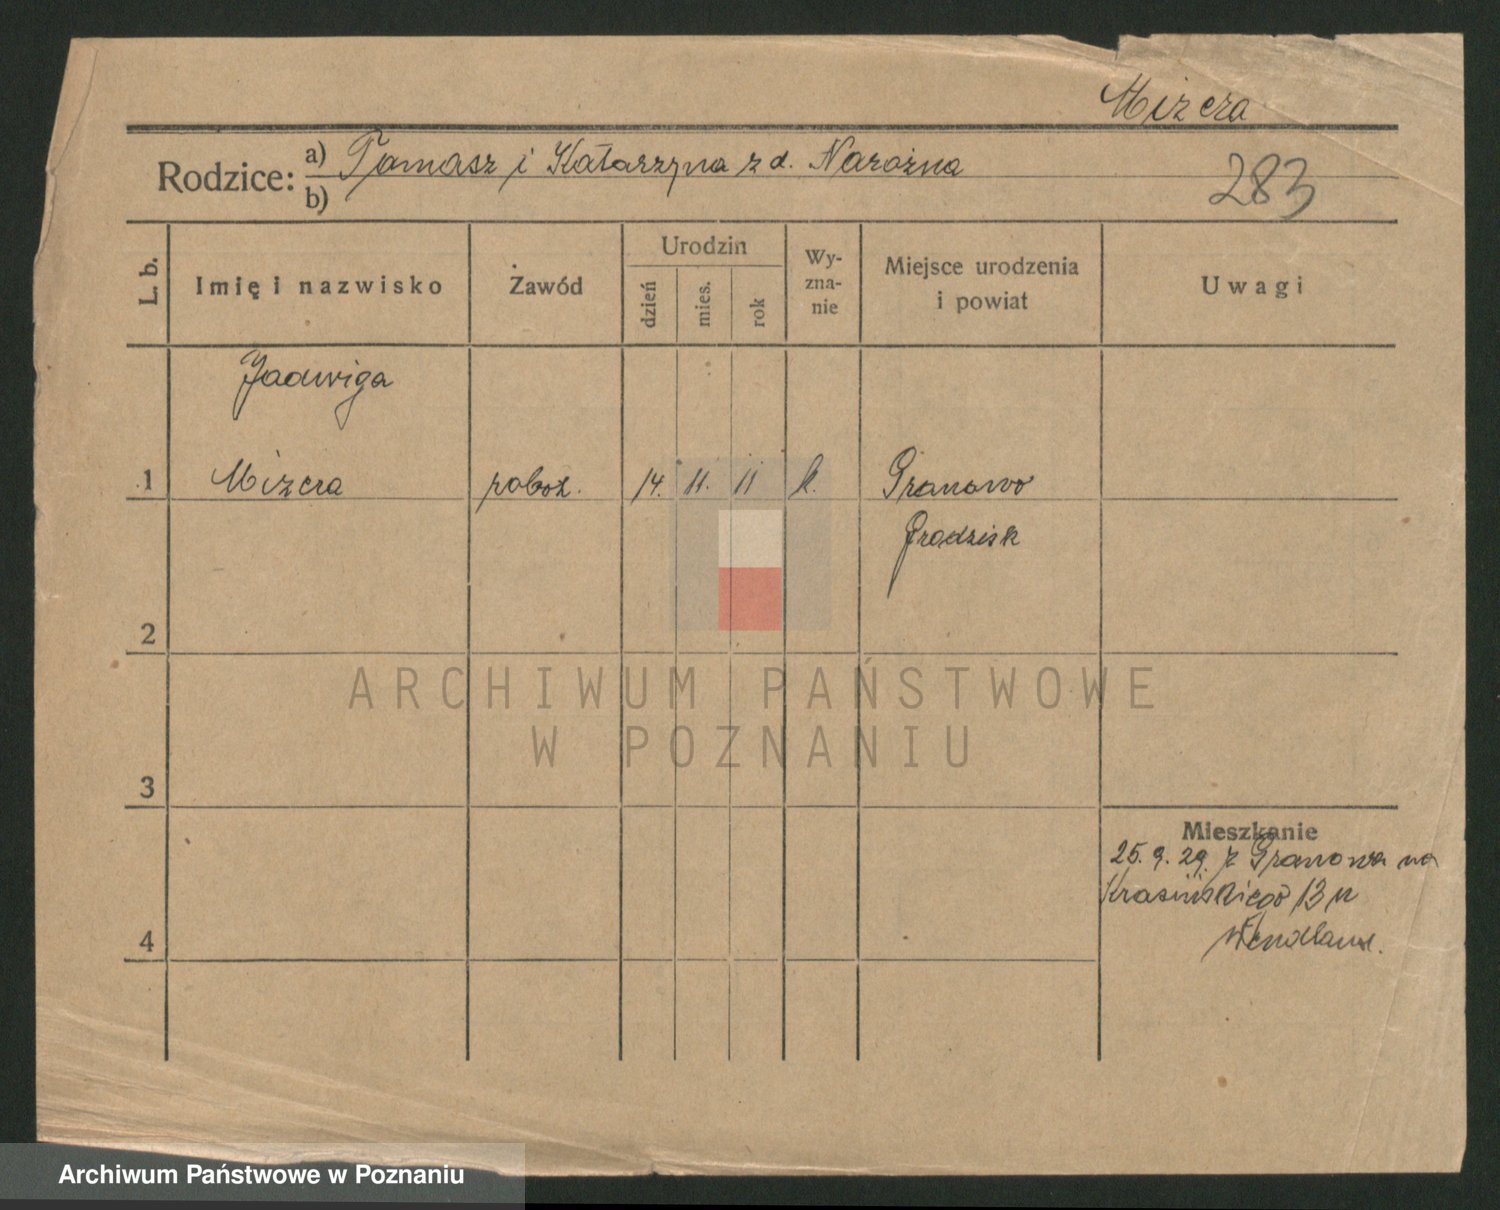 Mizera
Rodzice: a) Tomasz i Katarzyna z d. Narożna
b)
283
L. b.
Imię i nazwisko
Zawód
Urodzin
dzień
mies.
rok
Wy-
zna-
nie
Miejsce urodzenia
i powiat
Uwagi
Jadwiga
1 Mizera robot. 14. 11. 11 k. Granowo
Grodzisk
2
3
4
Mieszkanie
25. 9. 29. z Granowa na
Krasińskiego 13 u
Wendland.
ARCHIWUM PAŃSTWOWE
W POZNANIU
Archiwum Państwowe w Poznaniu